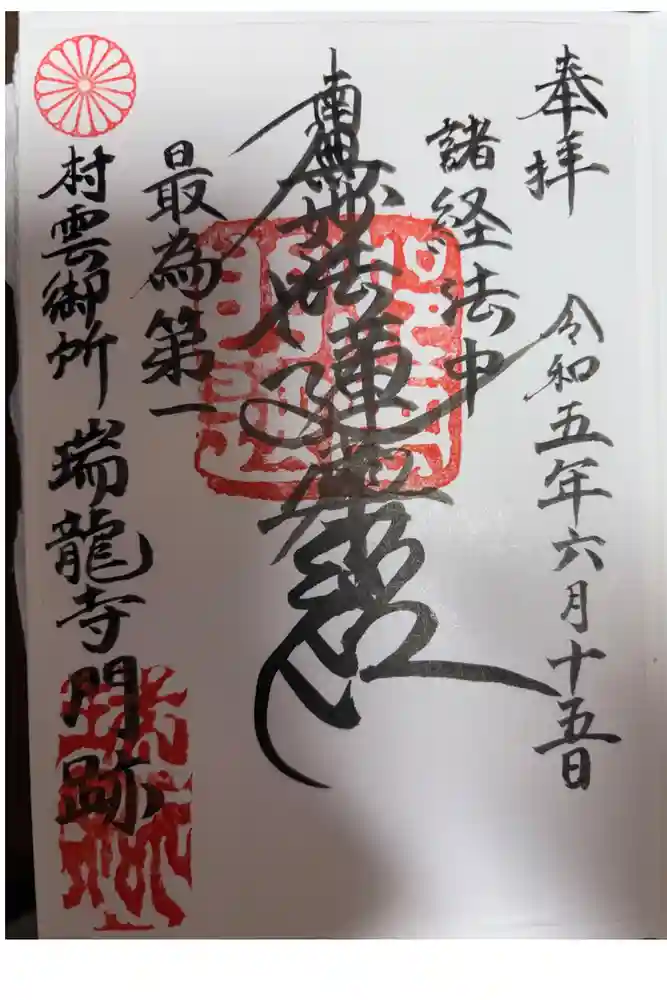 奉拝
令和五年六月十五日
諸経法中
南無妙法蓮華経
最為第一
村雲御所
瑞龍寺門跡